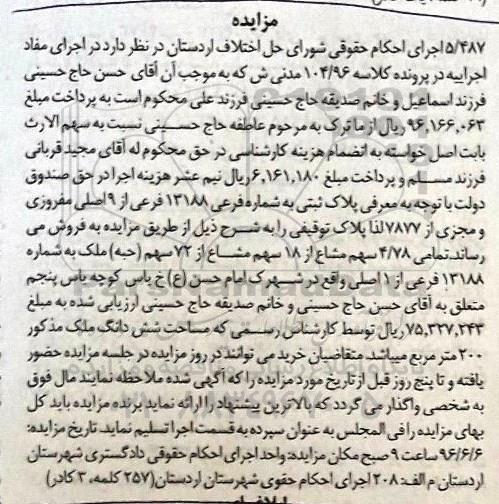 مزایده
۵/۴۸۷ اجرای احکام حقوقی شورای حل اختلاف اردستان در نظر دارد در اجرای مفاد
اجراییه در پرونده کلاسه ۱۰۴/۹۶ مدنی ش که به موجب آن آقای حسن حاج حسینی
فرزند اسماعیل و خانم صدیقه حاج حسینی فرزند علی محکوم است به پرداخت مبلغ
۹۶,۱۶۶,۰۶۳ ریال از ماترک به مرحوم عاطفه حاج حسینی نسبت به سهم الارث
بابت اصل خواسته به انضمام هزینه کارشناسی در حق محکوم له آقای مجید قربانی
فرزند مسلم و پرداخت مبلغ ۶,۱۶۱,۱۸۰ ریال نیم عشر هزینه اجرا در حق صندوق
دولت با توجه به معرفی پلاک ثبتی به شماره فرعی ۱۳۱۸۸ فرعی از ۹ اصلی مفروزی
و مجزی از ۷۸۷۷ لذا پلاک توقیفی را به شرح ذیل از طریق مزایده به فروش می
رساند. تمامی ۴/۷۸ سهم مشاع از ۱۸ سهم مشاع از ۷۲ سهم (حبه) ملک به شماره
۱۳۱۸۸ فرعی از ۱ اصلی واقع در شهرک امام حسن (ع) خ یاس کوچه یاس پنجم
متعلق به آقای حسن حاج حسینی و خانم صدیقه حاج حسینی ارزیابی شده به مبلغ
۷۵,۳۲۷,۲۴۳ ریال توسط کارشناس رسمی که مساحت شش دانگ ملک مذکور
۲۰۰ متر مربع میباشد. متقاضیان خرید می توانند در روز مزایده در جلسه مزایده حضور
یافته و تا پنج روز قبل از تاریخ مورد مزایده را که آگهی شده ملاحظه نمایند مال فوق
به شخصی واگذار می گردد که بالاترین پیشنهاد را ارائه نماید برنده مزایده باید کل
بهای مزایده را فی المجلس به عنوان سپرده به قسمت اجرا تسلیم نماید. تاریخ مزایده:
۹۶/۶/۶ ساعت ۹ صبح مکان مزایده: واحد اجرای احکام حقوقی دادگستری شهرستان
اردستان م الف: ۲۰۸ اجرای احکام حقوی شهرستان اردستان (۲۵۷ کلمه، ۳ کادر)